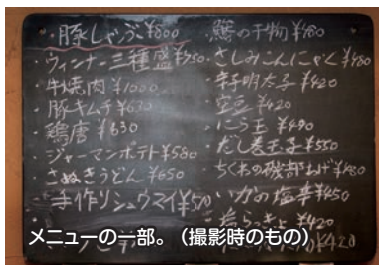 ・豚しゃぶ ¥800
・ウィンナー三種盛 ¥750
・牛焼肉 ¥1000
・豚キムチ ¥630
・鶏唐 ¥630
・ジャーマンポテト ¥580
・さぬきうどん ¥650
・手作りシュウマイ ¥550
・鯵の干物 ¥480
・さしみこんにゃく ¥480
・辛子明太子 ¥420
・空豆 ¥420
・にら玉 ¥490
・だし巻玉子 ¥550
・ちくわの磯部あげ ¥480
・いかの塩辛 ¥450
・塩らっきょ ¥420
¥420
メニューの一部。（撮影時のもの）